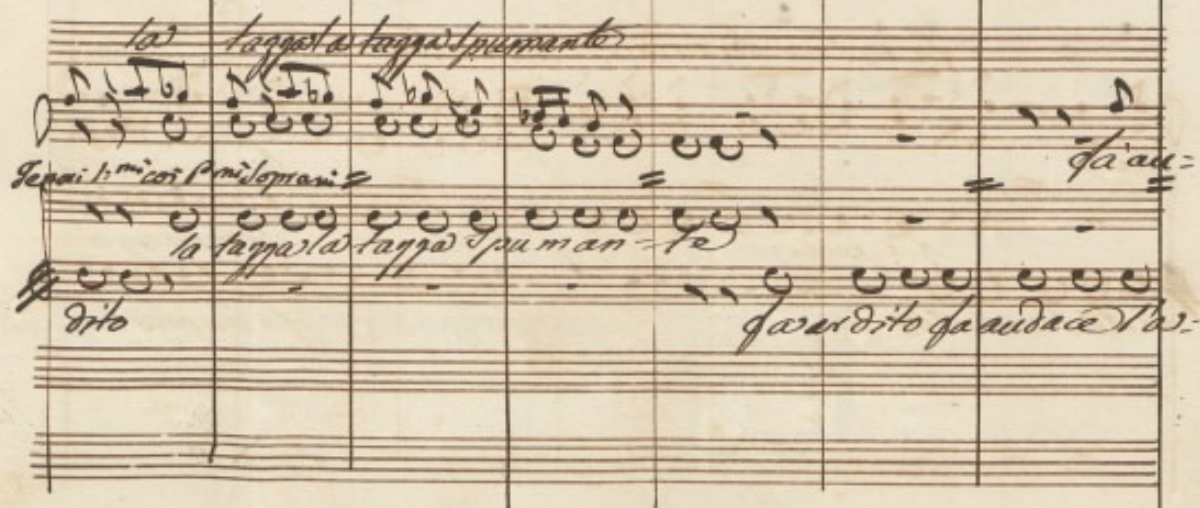 la tazza la tazza spumante
fa' au=
Tenori p:mi coi p:mi Soprani
la tazza la tazza spuman- te
dito fa ardito fa audace l'a-